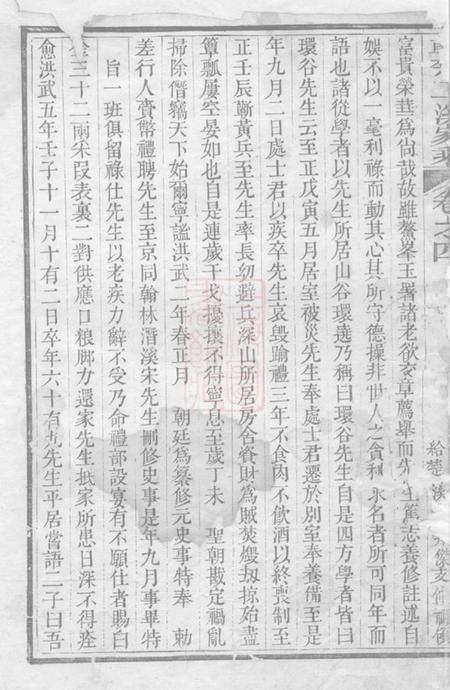 富貴榮華爲尚哉故雖鰲峯玉署諸老欲交章薦舉而先生篤志養修註述自
娛不以一毫利祿而動其心其所守德操非世人之貪利求名者所可同年而
語也諸從學者以先生所居山谷環遶乃稱曰環谷先生自是四方學者皆曰
環谷先生云至正戊寅五月居室被災先生奉處士君遷於別至奉養備至是
年九月二日處士君以疾卒先生哀毀踰禮三年不食肉不飲酒以終喪制至
正壬辰蘄黃兵至先生率長幼避兵深山所居房舍貲財爲賊焚燬刼掠始盡
簞瓢屢空晏如也自是連歲干戈擾攘不得寧息至歲丁未 聖朝戡定禍亂
掃除僭竊天下始爾寧謐洪武二年春正月 朝廷爲纂修元史事特奉 勅
差行人賫幣禮聘先生至京同翰林潛溪宋先生刪修史事是年九月事畢特
旨一班俱留祿仕先生以老疾力辭不受乃命禮部設宴有不願仕者賜白
金三十二兩采段表裏二對供應口粮脚力還家先生抵家所患日深不得痊
愈洪武五年壬子十一月十有二日卒年六十有九先生平居嘗語二子曰吾
卷之四